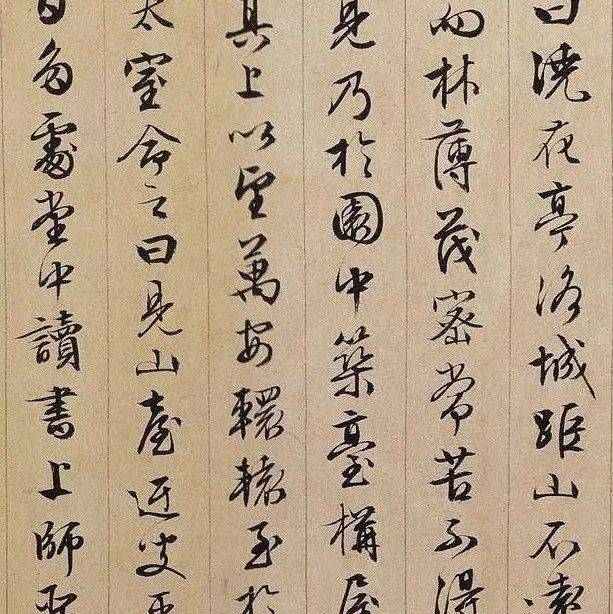 曰澆花亭洛城距山不遠
而林薄茂密常苦不得
見乃於園中築臺構屋
其上以望萬安轘轅至於
太室命之曰見山臺迂叟平
日多處堂中讀書上師聖